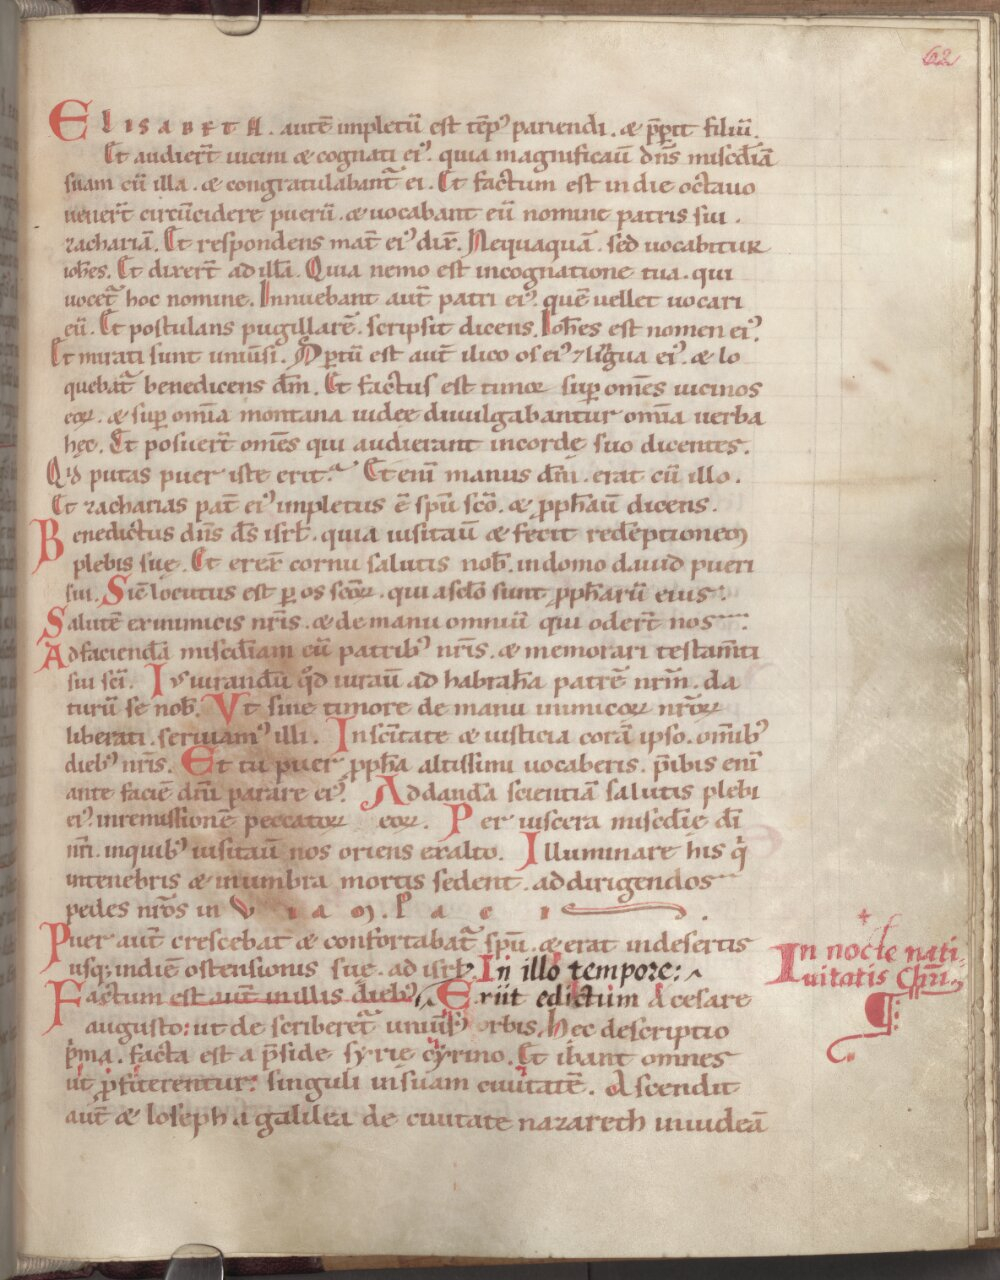 62
ELISABETH. autē impletū est tēp⁹ pariendi. & pꝑit filiū.
Et audier̄t uicini & cognati ei⁹. quia magnificauit dn̄s misc̄diā
suam cū illa. & congratulabant̄ ei. Et factum est in die octauo
uener̄t circūcidere puerū. & uocabant eū nomine patris sui.
zachariā. Et respondens mat̄ ei⁹ dix̄. Nequaquā. sed uocabitur
ioh̄es. Et dixer̄t ad illā. Quia nemo est incognatione tua. qui
uocet̄ hoc nomine. Innuebant aut̄ patri ei⁹. quē uellet uocari
eū. Et postulans pugillarē. scripsit dicens. Ioh̄es est nomen ei⁹.
Et mirati sunt uniūsi. Apertū est aut̄ ilico os ei⁹ ⁊ lingua ei⁹. & lo
quebat̄ benedicens dm̄. Et factus est timor sup̄ om̄es uicinos
eoꝝ. & sup̄ om̄ia montana iudeę diuulgabantur om̄ia uerba
hęc. Et posuer̄t om̄es qui audierant incorde suo dicentes.
Qⁱd putas puer iste erit? Et eni manus dn̄i. erat cū illo.
Et zacharias pat̄ ei⁹ impletus ē spū scō. & ꝓph̄auit dicens.
Benedictus dn̄s ds̄ isrl̄. quia uisitauit & fecit redēptionem
plebis suę. Et erex̄ cornu salutis nob̄. indomo dauid pueri
sui. Sic̄ locutus est ꝑ os sc̄oꝝ. qui asclō sunt ꝓph̄arū eius.
Salutē exinimicis nr̄is. & de manu omniū qui oder̄t nos.
Ad faciendā misc̄diam cū patrib⁹ nr̄is. & memorari testam̄ti
sui sc̄i. Iusiurandū qd̄ iurauit ad habrahā patrē nrm̄. da
turū se nob̄. Vt sine timore de manu inimicoꝝ nr̄oꝝ
liberati. seruiam⁹ illi. In sc̄itate & iusticia corā ipso. omib⁹
dieb⁹ nr̄is. Et tu puer ꝓph̄a altissimi uocaberis. p̄ibis eni
ante faciē dn̄i parare ei⁹. Ad dandā scientiā salutis plebi
ei⁹ inremissionē peccatoꝝ eoꝝ. Per uiscera misc̄dię dī
nr̄i. inquib⁹ uisitauit nos oriens exalto. Illuminare his qⁱ
intenebris & inumbra mortis sedent. addirigendos
pedes nr̄os in VIAM. PACI
Puer aut̄ crescebat & confortabat̄ spū. & erat indesertis
usq; indiē ostensionis suę. ad isrl̄. In illo tempore:
Factum est aut̄ in illis dieb⁹. Exiit edictum a cesare
augusto: ut describeret̄ uniūs⁹ orbis. Hec descriptio
p̄ma. facta est a p̄side syrię cyrino. Et ibant omnes
ut ꝓfiterentur: singuli insuam ciuitatē. Ascendit
aut̄ & Ioseph a galilea de ciuitate nazareth iniudeā
In nocte nati
uitatis Chrī.